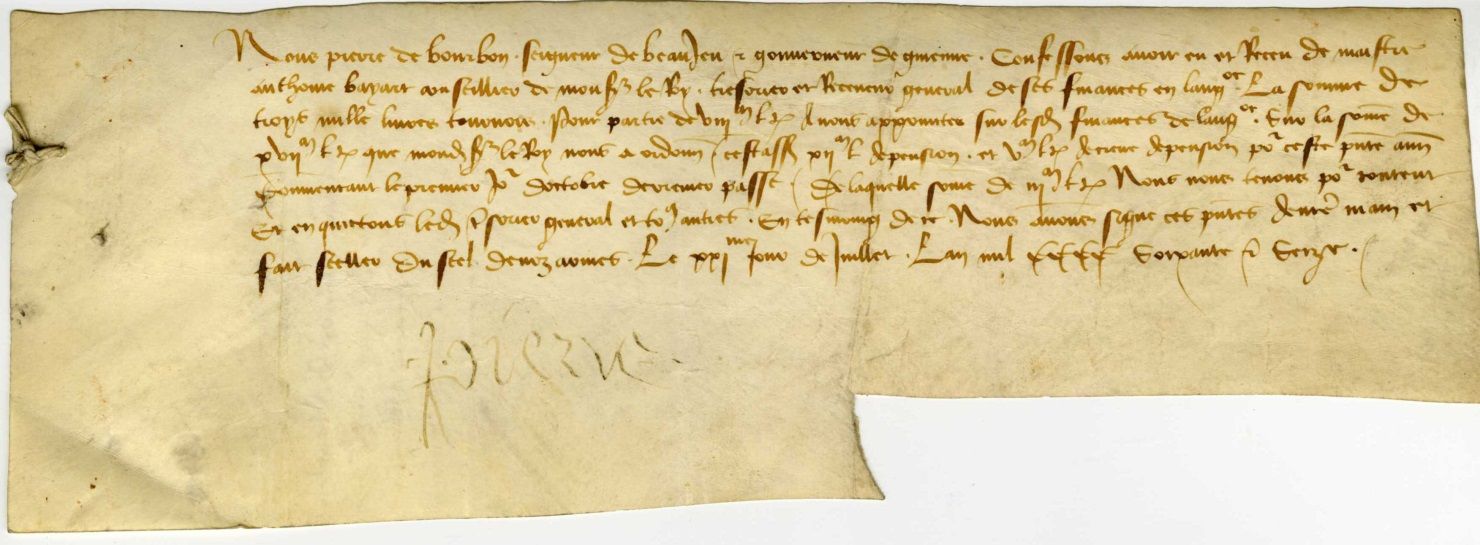 Nous pierre de bourbon . seigneur de beaujeu & gouverneur de guienne . Confessons avoir eu et Receu de maistre
anthoine bayart conseillier de mons^r le Roy . tresorier et Receveur general de ses finances en lang^oc La somme de
troys mille livres tournois . pour partie de viii^m l t A nous appointes sur lesd finances de lang^oc . Sur la some de
xvii^m l t que mond s^r le Roy nous a ordonn cestass xii^m l de pension . et v^m l t de creue de pension po^r ceste pnte ann
commencant le premier jo^r doctobre derrenier passe De laquelle some de iii^m l t Nous nous tenons po^r content
Et en quictons led tsorier general et to^s autres . En tesmoing de ce Nous avons signe ces pntes de nre main et
fait seeller du seel de noz armes . Le xxi^me jour de Juillet . Lan mil cccc soixante & seize .
Pierre